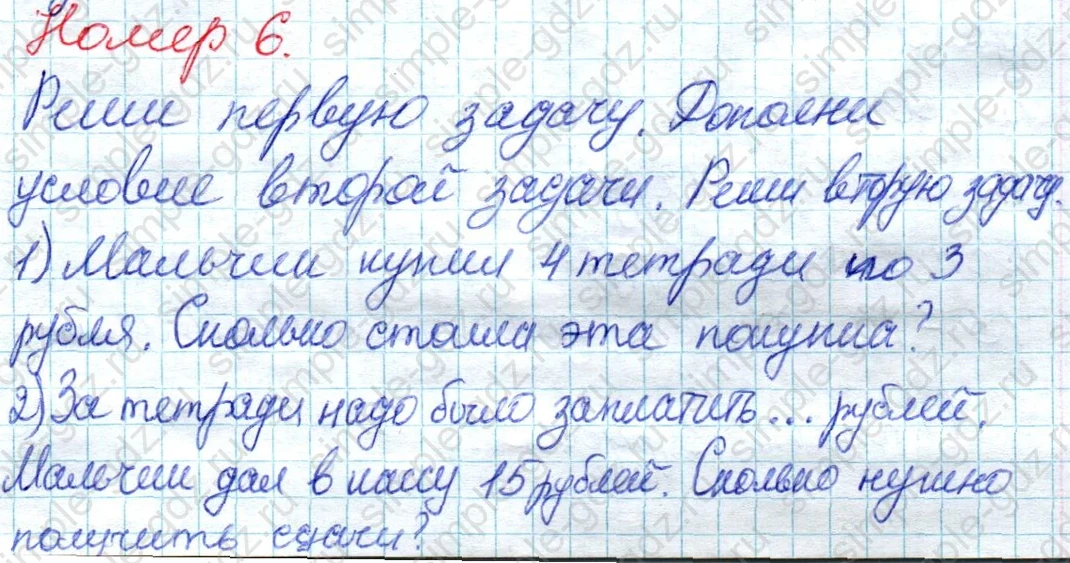 Номер 6.
Реши первую задачу. Дополни
условие второй задачи. Реши вторую задачу.
1) Мальчик купил 4 тетради по 3
рубля. Сколько стоила эта покупка?
2) За тетради надо было заплатить... рублей.
Мальчик дал в кассу 15 рублей. Сколько нужно
получить сдачи?